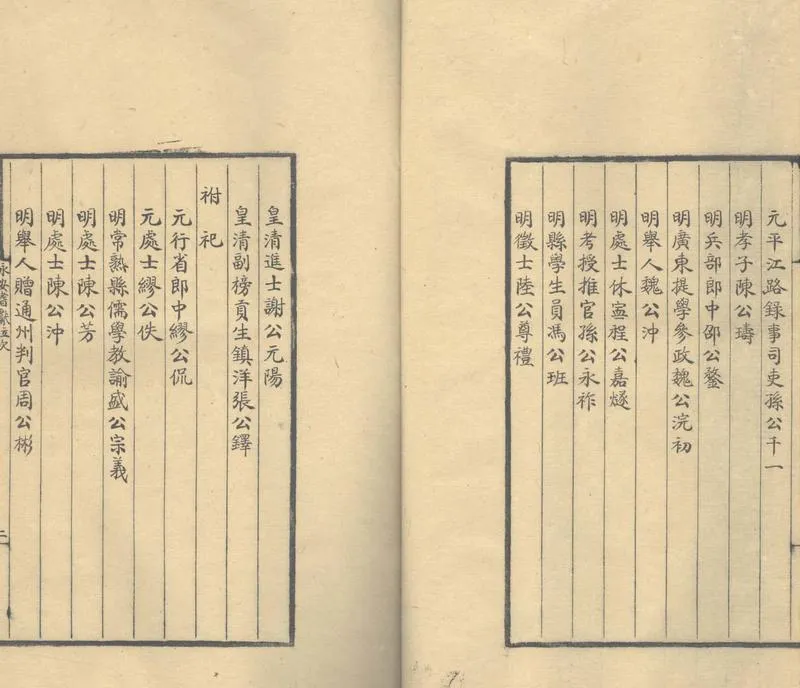 元平江路錄事司吏孫公千一
明孝子陳公璹
明兵部郎中邵公鏊
明廣東提學參政魏公浣初
明舉人魏公沖
明處士休寧程公嘉燧
明考授推官孫公永祚
明縣學生員馮公班
明徵士陸公尊禮
皇清進士謝公元陽
皇清副榜貢生鎮洋張公鐸
祔祀
元行省郎中繆公侃
元處士繆公佚
明常熟縣儒學教諭盛公宗義
明處士陳公芳
明處士陳公沖
明舉人贈通州判官周公彬
二